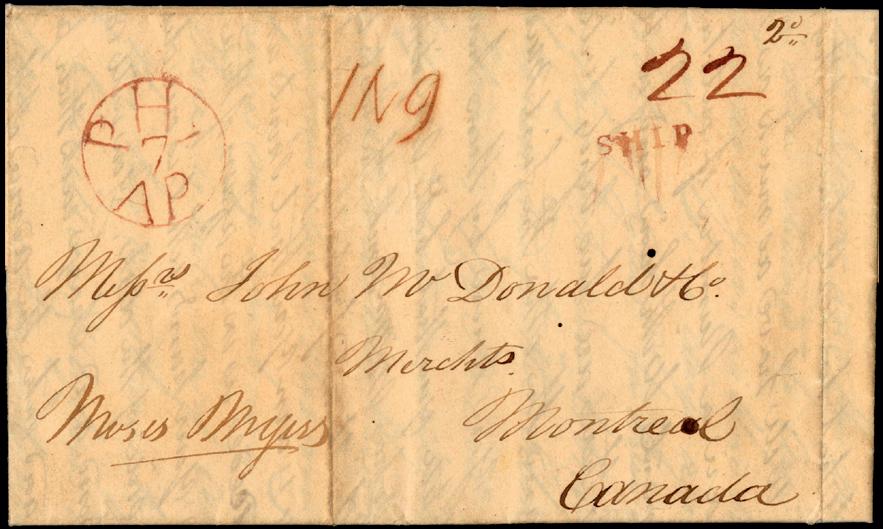 2d
22
1N9
SHIP
PHI
7
AP
Messrs John McDonald & Co.
Merchts.
Montreal
Canada
Moses Myers